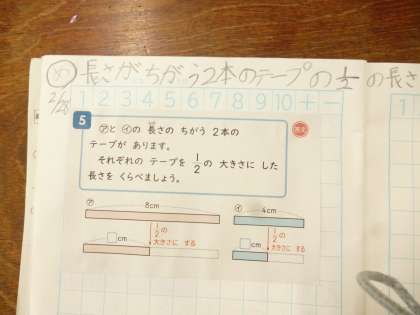 め 長さがちがう2本のテープの1/2の長さ
2/28
1 2 3 4 5 6 7 8 9 10 + −
5
㋐と ㋑の 長さの ちがう 2本の
テープが あります。
それぞれの テープを 1/2の 大きさに した
長さを くらべましょう。
㋐ 8cm
1/2の
大きさに する
□cm
㋑ 4cm
1/2の
大きさに する
□cm
1